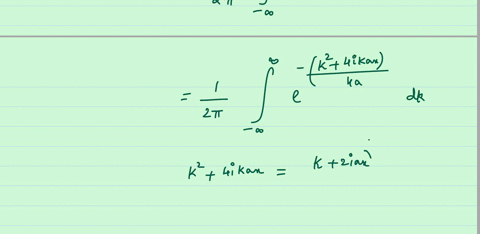 2π -∞
= 1/2π ∫_{-∞}^{∞} e^{-(k²+4ikax)/4a} dk
k² + 4ikax = k + 2iax)